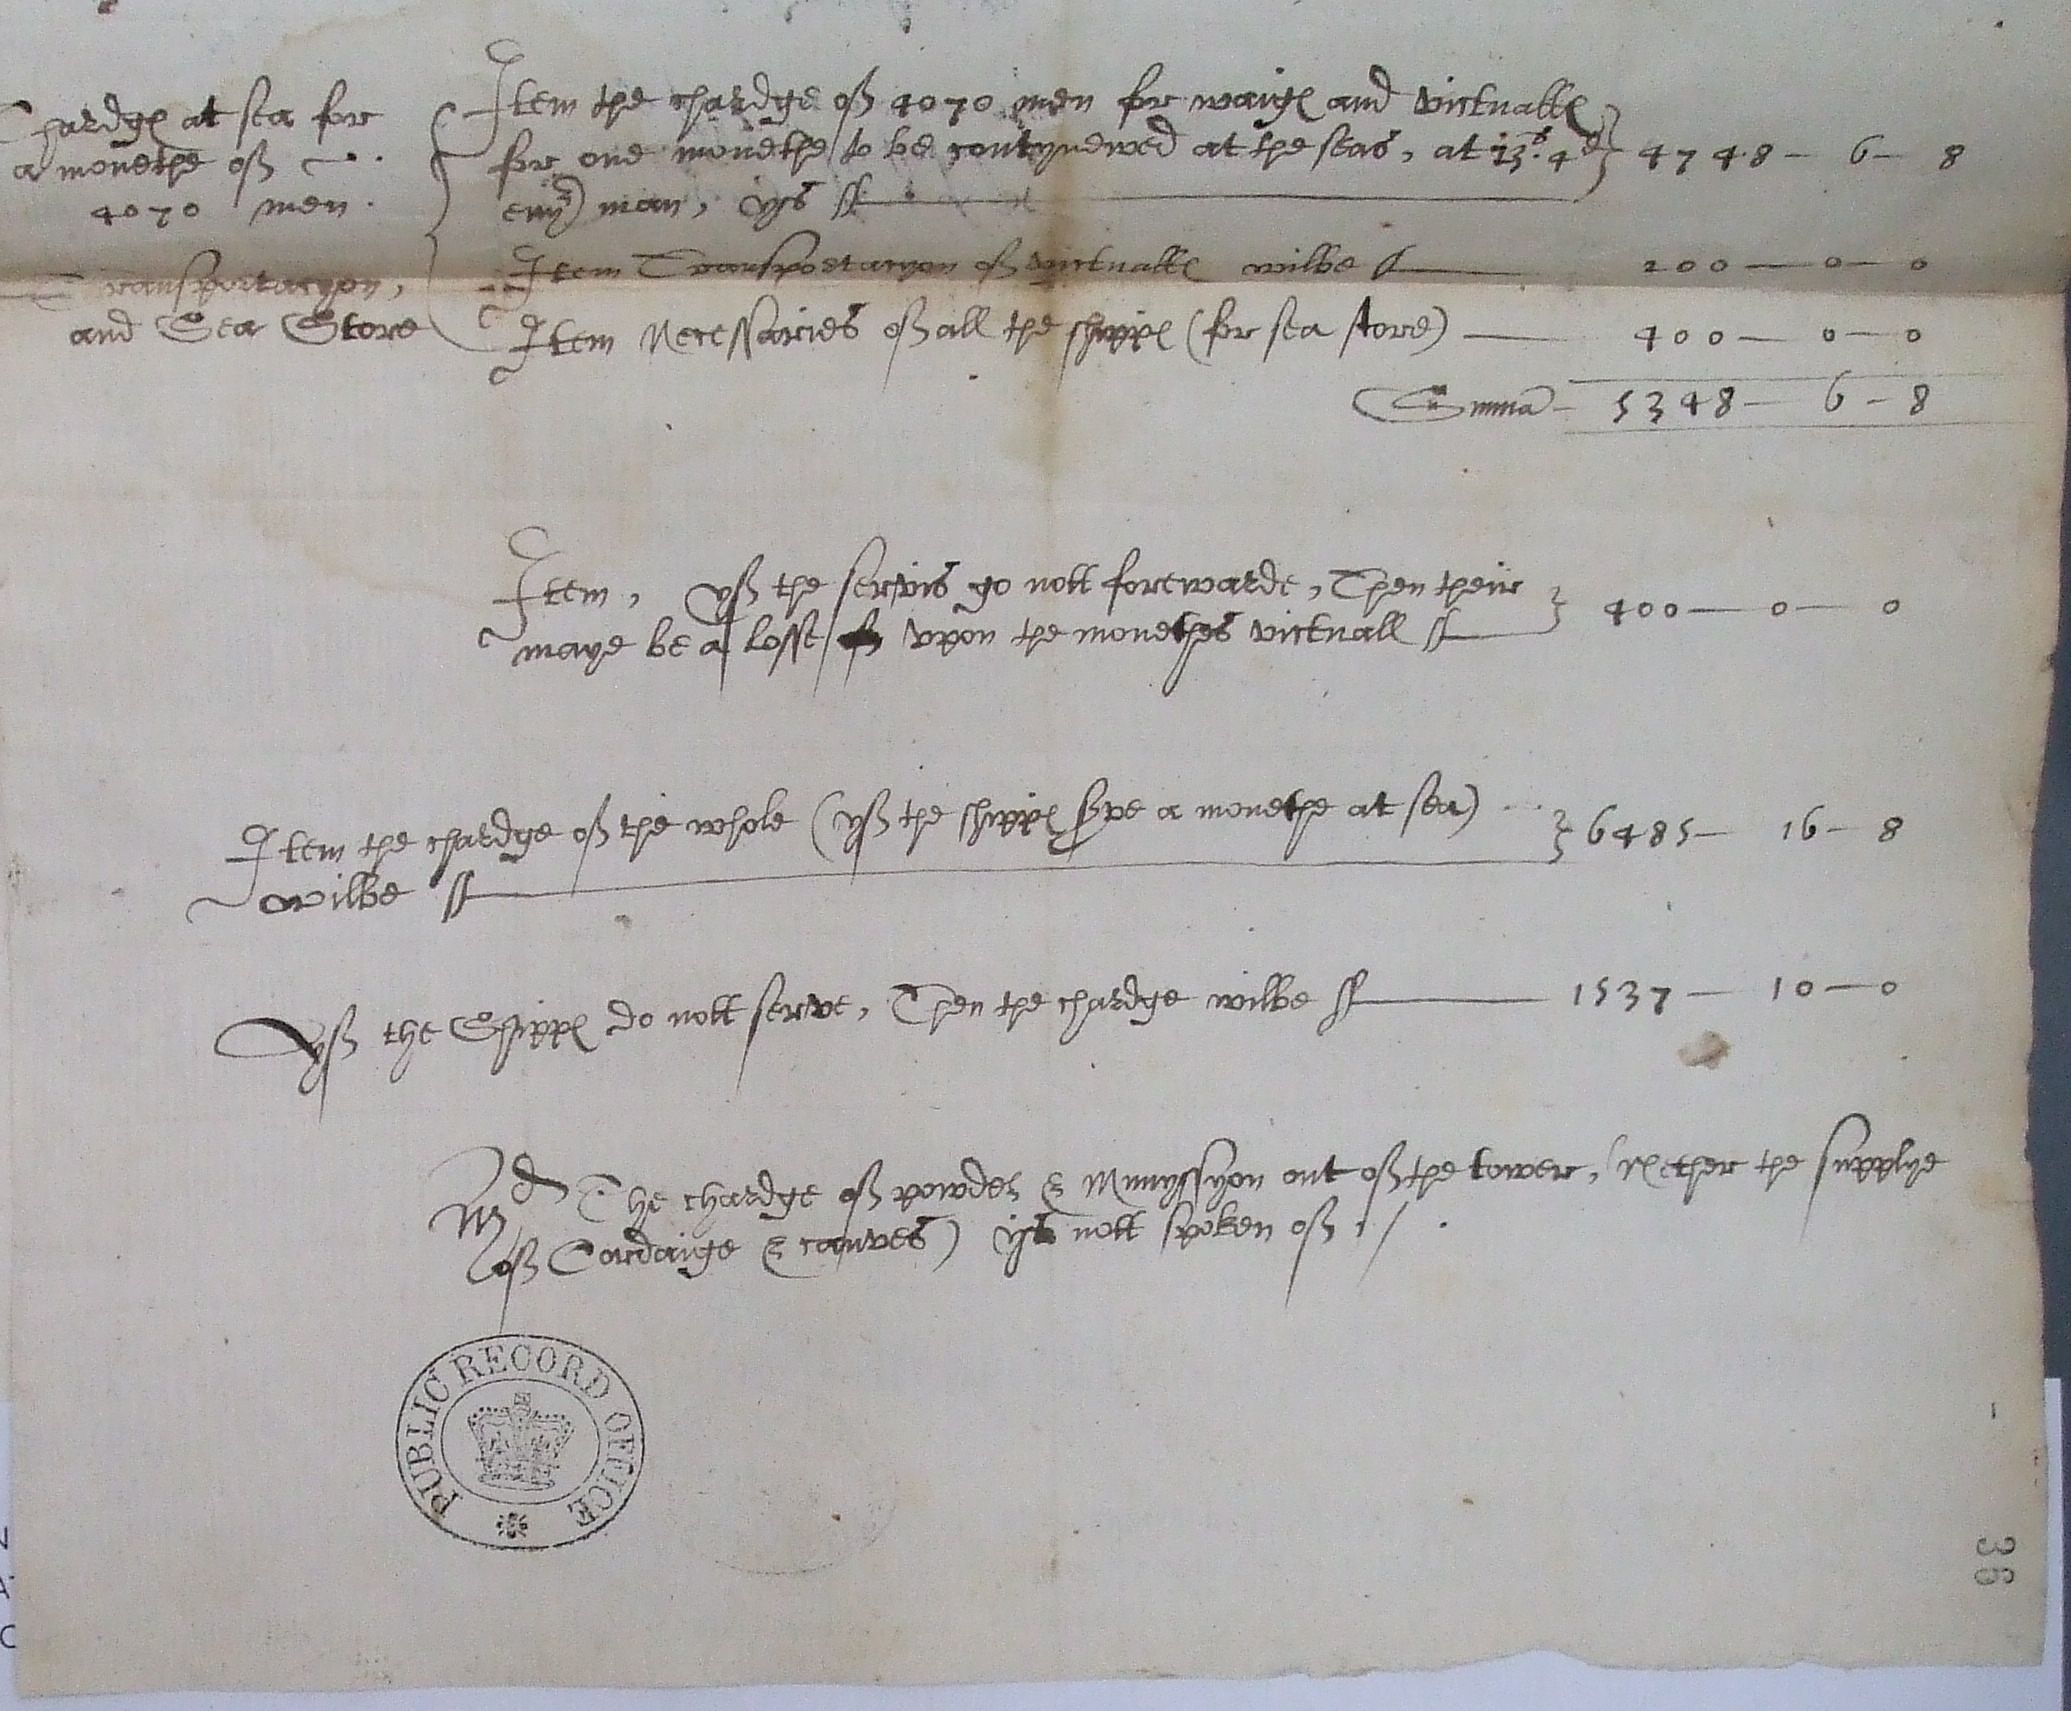 Chardges at sea for
a monethe off
4070 men.
Item the chardge off 4070 men for waiges and victualls
for one monethe to be contynewed at the seas, at 13s. 4d
every man, yis 4748 — 6 — 8
Transportacyon,
and Sea Store
Item Transportacyon off victualls wilbe 200 — 0 — 0
Item Necessaries off all the shippes (for sea store) 400 — 0 — 0
Summa — 5348 — 6 — 8
Item, yff the servis go nott forewarde, Then their
maye be a losse upon the monethes victuall 400 — 0 — 0
Item the chardge off the whole (yff the shippes serve a monethe at sea)
wilbe 6485 — 16 — 8
Yff the Shippes do nott serve, Then the chardge wilbe 1537 — 10 — 0
Md The chardge off powder & Munyssyon out off the tower, (nether the supplye
off Cordaige & canves) ys nott spoken off
PUBLIC RECORD OFFICE
36